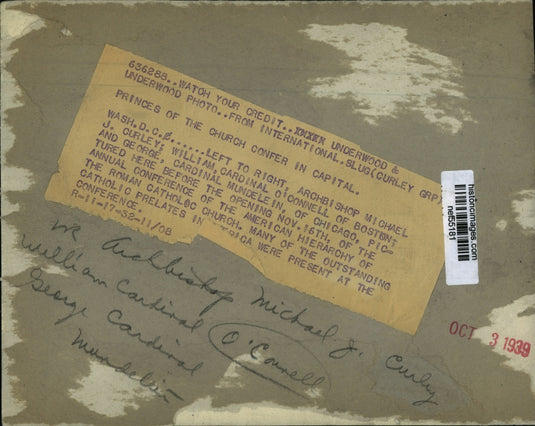 636288..WATCH YOUR CREDIT..XXXXX UNDERWOOD &
UNDERWOOD PHOTO..FROM INTERNATIONAL.SLUG(CURLEY GRP)
PRINCES OF THE CHURCH CONFER IN CAPITAL.
WASH.D.C.......LEFT TO RIGHT, ARCHBISHOP MICHAEL
J. CURLEY; WILLIAM CARDINAL O'CONNELL OF BOSTON;
AND GEORGE, CARDINAL MUNDELEIN, OF CHICAGO, PIC-
TURED HERE BEFORE THE OPENING NOV.16TH, OF THE
ANNUAL CONFERENCE OF THE AMERICAN HIERARCHY OF
THE ROMAN CATHOLC CHURCH. MANY OF THE OUTSTANDING
CATHOLIC PRELATES IN WERE PRESENT AT THE
CONFERENCE
R-11-17-32-11/08
historicimages.com
nef55181
OCT 3 1939
Archbishop Michael J. Curley
William Cardinal O'Connell
George Cardinal
Mundelein